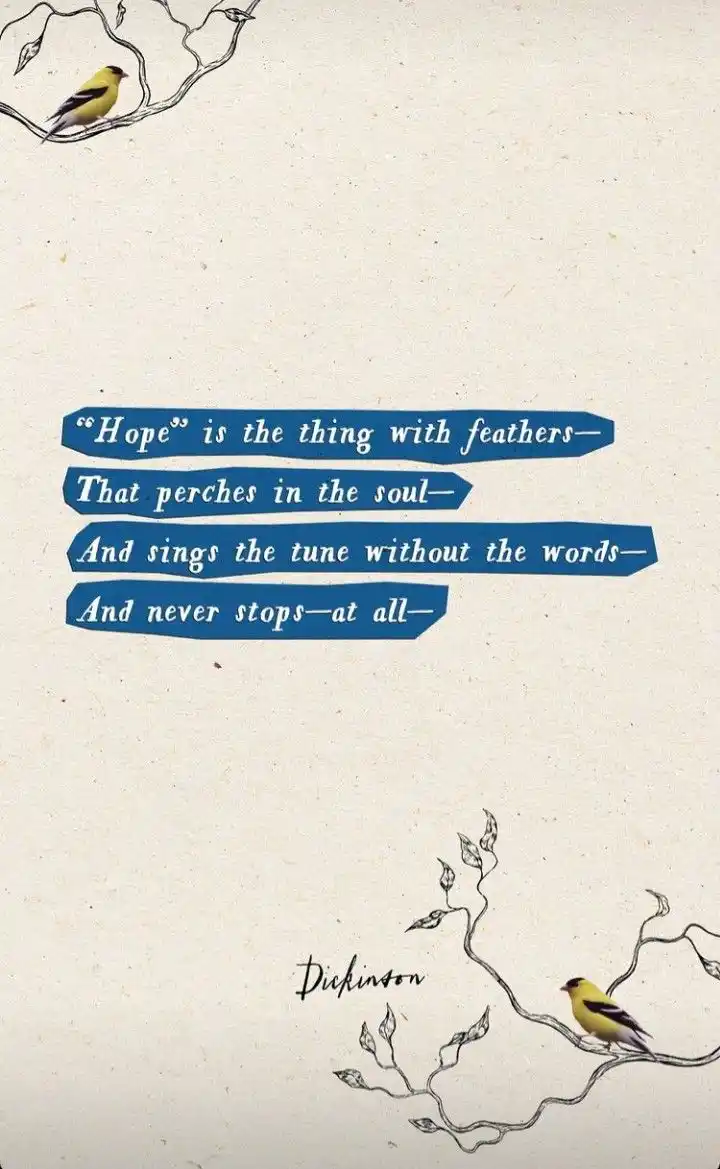 “Hope” is the thing with feathers—
That perches in the soul—
And sings the tune without the words—
And never stops—at all—
Dickinson